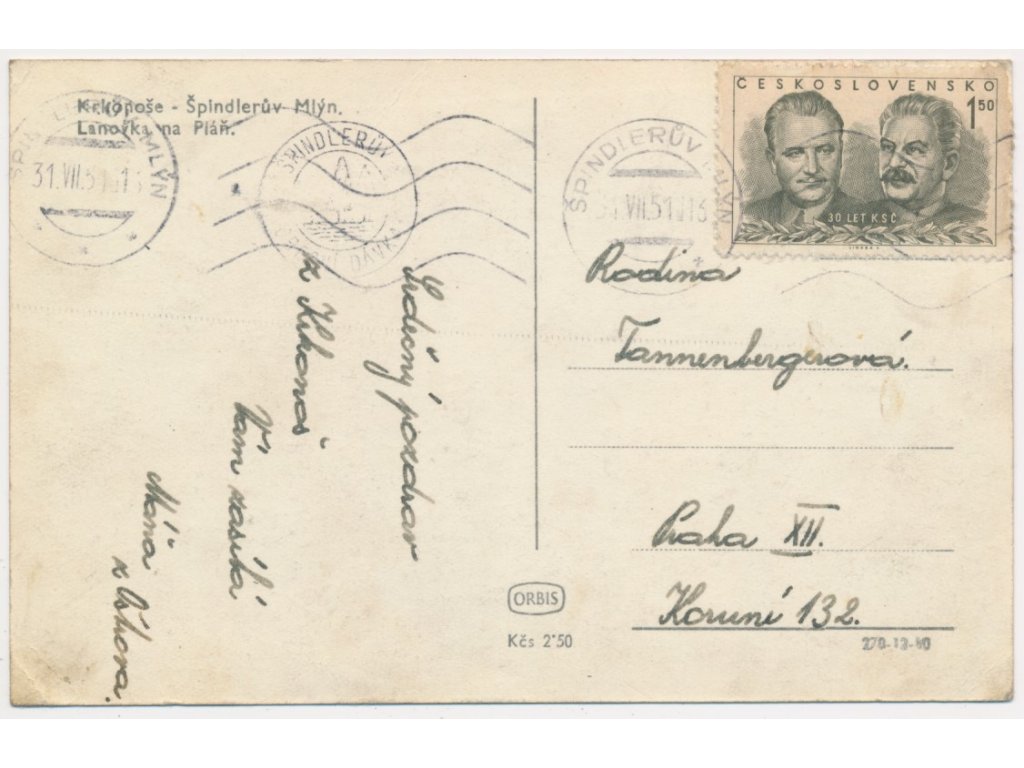 Krkonoše - Špindlerův Mlýn.
Lanovka na Pláň.
ŠPINDLERŮV MLÝN
31.VII.51-13
ŠPINDLERŮV
ŠPINDLERŮV MLÝN
31.VII.51-13
ČESKOSLOVENSKO
1 50
30 LET KSČ
Srdečný pozdrav
z Krkonoš
Vám zasílá
Máňa
Rodina
Tannenbergerová.
Praha XII.
Koruní 132.
ORBIS
Kčs 2'50